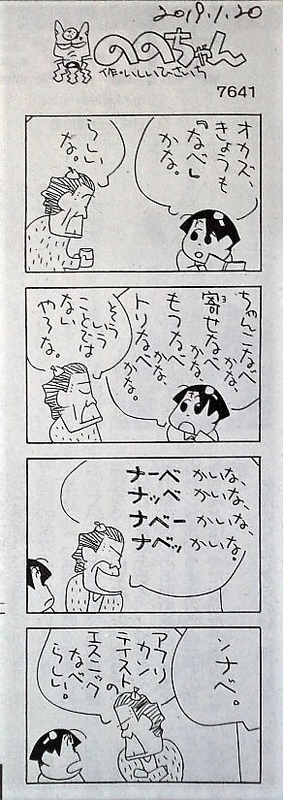 2019.1.20
ののちゃん
作・いしいひさいち
7641
オカズ、
きょうも
『なべ』
かな。
らしい
な。
ちゃんこなべ
かな、
寄せなべ
かな、
もつなべ
かな、
トリなべ
かな。
そう
いう
ことでは
ない
やろな。
ナーベ かいな、
ナッベ かいな、
ナベー かいな、
ナベッ かいな。
ンナベ。
アフリ
カン
テイスト
の
エスニック
なべ
らしい。